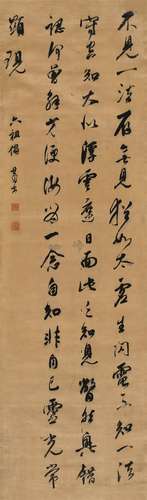 不見一法存無見猶如太虛生閃電不知一法
守空知大似浮雲遮日面此之知見瞥然興錯
認何曾解方便汝當一念自知非自己靈光常
顯現
六祖偈